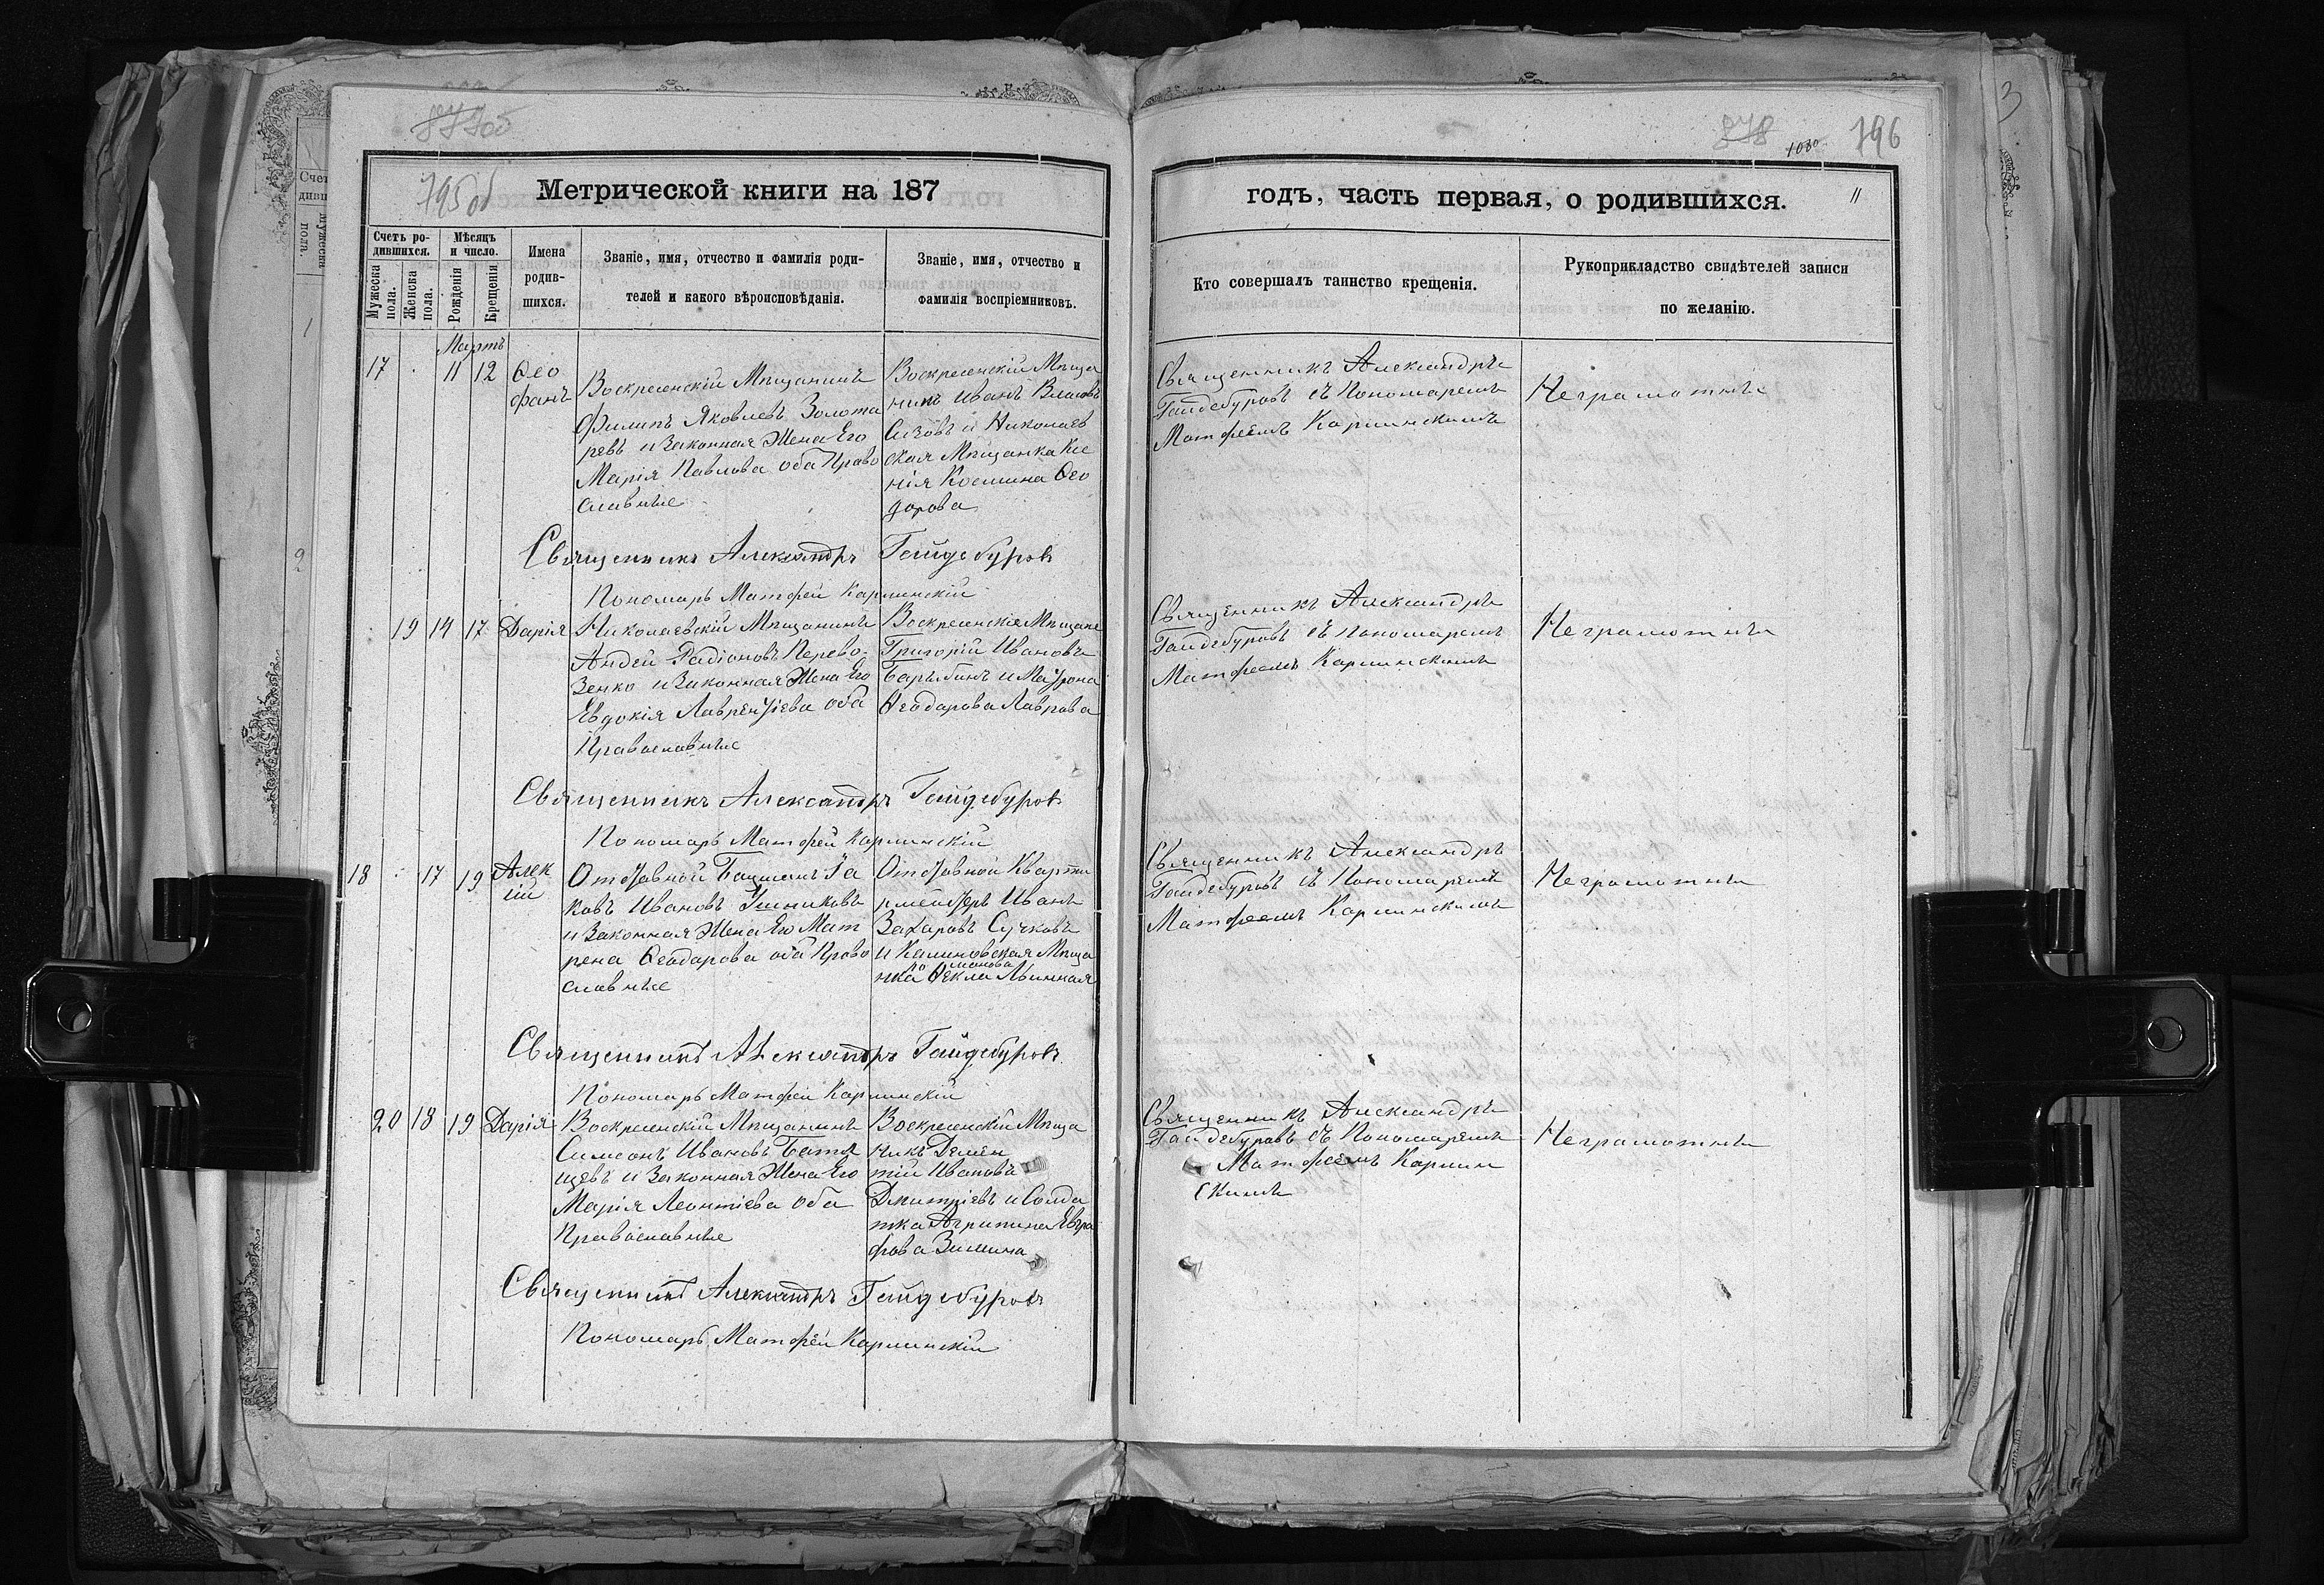 877об
795об
Метрической книги на 187
Счетъ ро-
дившихся.
Мѣсяцъ
и число.
Имена
родив-
шихся.
Званіе, имя, отчество и фамилія роди-
телей и какого вѣроисповѣданія.
Званіе, имя, отчество и
фамилія воспріемниковъ.
Мужеска
пола.
Женска
пола.
Рожденія
Крещенія
Мартъ
17 11 12 Ѳео
фанъ
Воскресенскій Мѣщанинъ
Филипъ Яковлевъ Золота
ревъ и Законная Жена Его
Марія Павлова оба Право
славные
Воскресенскій Мѣща
нинъ Иванъ
и Николаев
ская Мѣщанка Ксе
нія Космина Ѳео
дорова
Священникъ Александръ Гайдебуровъ
Пономарь Матфей Карпинскій
19 14 17 Дарія
Николаевскій Мѣщанинъ
Андей Радіоновъ Перево-
Зенко и Законная Жена Его
Евдокія Лаврентіева оба
Православные
Воскресенскіе Мѣщане
Григорій Ивановъ
Барыбинъ и Матрона
Ѳеодарова Лаврова
Священникъ Александръ Гайдебуровъ
Пономарь Матфей Карпинскій
18 17 19 Алек
сій
Отставной Боцманъ Іа
ковъ Ивановъ
и Законная Жена Его Мат
рена Ѳеодарова оба Право
славные
Отставной Кварти
рмейстеръ Иванъ
Захаровъ Сучковъ
и Калиновская Мѣща
нка Ѳекла
Священникъ Александръ Гайдебуровъ
Пономарь Матфей Карпинскій
20 18 19 Дарія
Воскресенскій Мѣщанинъ
Симеонъ Ивановъ
и Законная Жена Его
Марія Леонтіева Оба
Православные
Воскресенскій Мѣща
нинъ Демен
тій Ивановъ
Дмитріевъ и Солда
тка Агрипина Евгра
фова Зимина
Священникъ Александръ Гайдебуровъ
Пономарь Матфей Карпинскій
878
1080
796
годъ, часть первая, о родившихся.
11
Кто совершалъ таинство крещенія.
Рукоприкладство свидѣтелей записи
по желанію.
Священникъ Александръ
Гайдебуровъ съ Пономаремъ
Матфеемъ Карпинскимъ
Неграмотны
Священникъ Александръ
Гайдебуровъ съ Пономаремъ
Матфеемъ Карпинскимъ
Неграмотны
Священникъ Александръ
Гайдебуровъ съ Пономаремъ
Матфеемъ Карпинскимъ
Неграмотны
Священникъ Александръ
Гайдебуровъ съ Пономаремъ
Матфеемъ Карпин
скимъ
Неграмотны
3
Счет
дивш
1
2